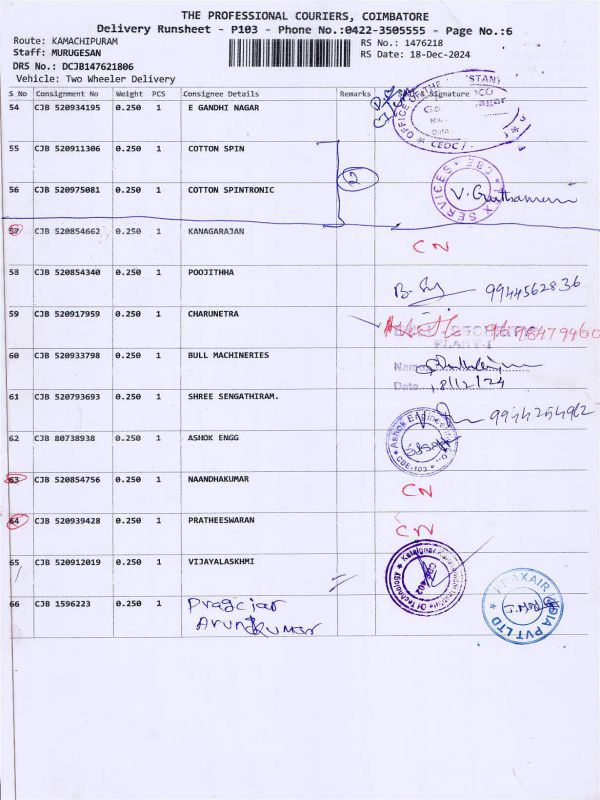 THE PROFESSIONAL COURIERS, COIMBATORE
Delivery Runsheet - P103 - Phone No.:0422-3505555 - Page No.:6
Route: KAMACHIPURAM RS No.: 1476218
Staff: MURUGESAN RS Date: 18-Dec-2024
DRS No.: DCJB147621806
Vehicle: Two Wheeler Delivery
S No Consignment No Weight PCS Consignee Details Remarks & Signature
54 CJB 520934195 0.250 1 E GANDHI NAGAR
OFFICE OF THE
No.
Date
CEDC
55 CJB 520911306 0.250 1 COTTON SPIN
56 CJB 520975081 0.250 1 COTTON SPINTRONIC
2
SERVICES CBE
57 CJB 520854662 0.250 1 KANAGARAJAN CN
58 CJB 520854340 0.250 1 POOJITHHA 9944562836
59 CJB 520917959 0.250 1 CHARUNETRA 9698479460
PLANT-I
60 CJB 520933798 0.250 1 BULL MACHINERIES
Name
Date 18/12/24
61 CJB 520793693 0.250 1 SHREE SENGATHIRAM. 9944254962
62 CJB 80738938 0.250 1 ASHOK ENGG
Ashok Engineering
CBE-103
63 CJB 520854756 0.250 1 NAANDHAKUMAR CN
64 CJB 520939428 0.250 1 PRATHEESWARAN CN
65 CJB 520912019 0.250 1 VIJAYALASKHMI
Kalaignar Karunanidhi Institute Of Technology
CBE-402
66 CJB 1596223 0.250 1 Pragciar
Arun Kumar
PRAXAIR INDIA PVT LTD